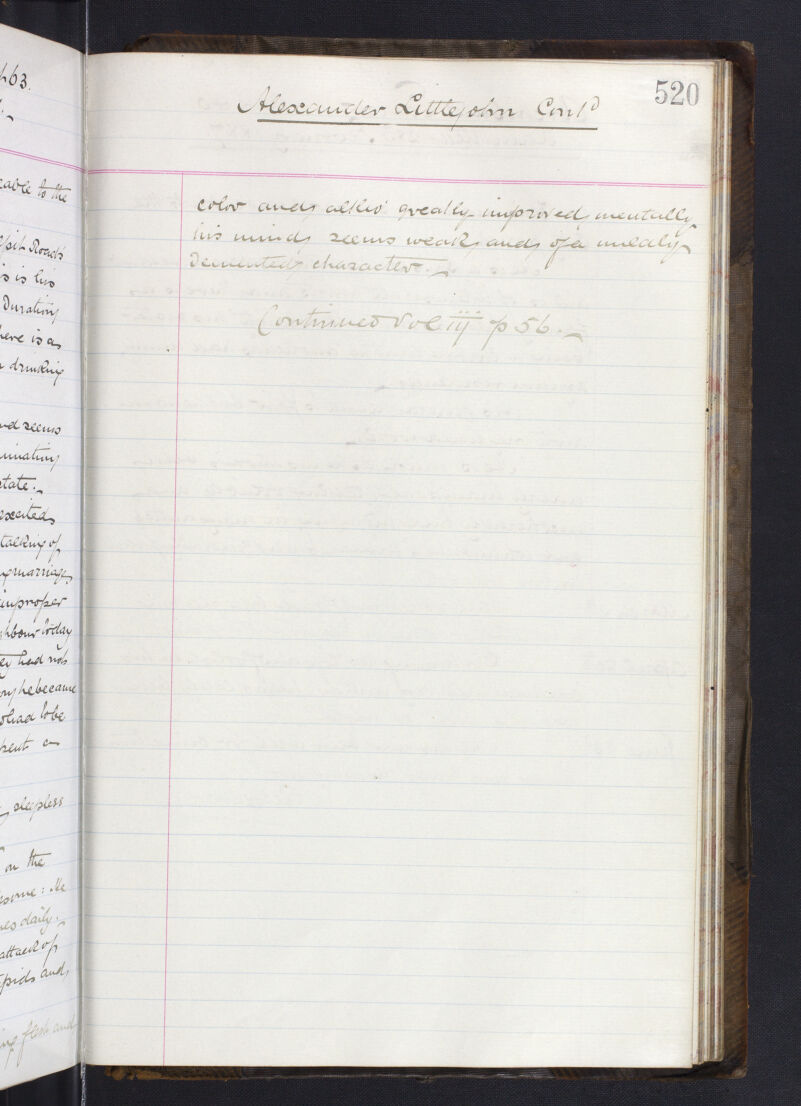 463.
cable to the
Spit Roads
is is his
Duration
here is a
drinking
and seems
state.
excited
talking of
marriage
improper
neighbour today
they had not
he became
had to be
sleepless
on the
Me
daily.
attack of
and
flesh and
520
Alexander Littlejohn Cont^d
color and altho' greatly improved mentally
his mind seems weak and of a
Demented character
Continued Vol iij p 56.